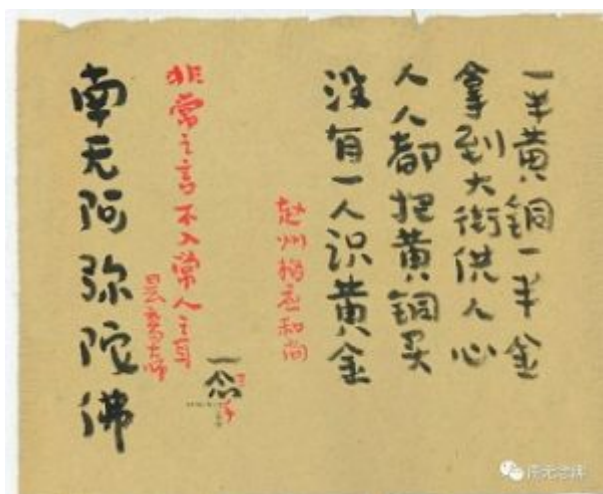 一半黄铜一半金
拿到大街供人心
人人都把黄铜买
没有一人识黄金
赵州和尚
非常之言不入常人之耳
昙鸾大师
一念
南无阿弥陀佛